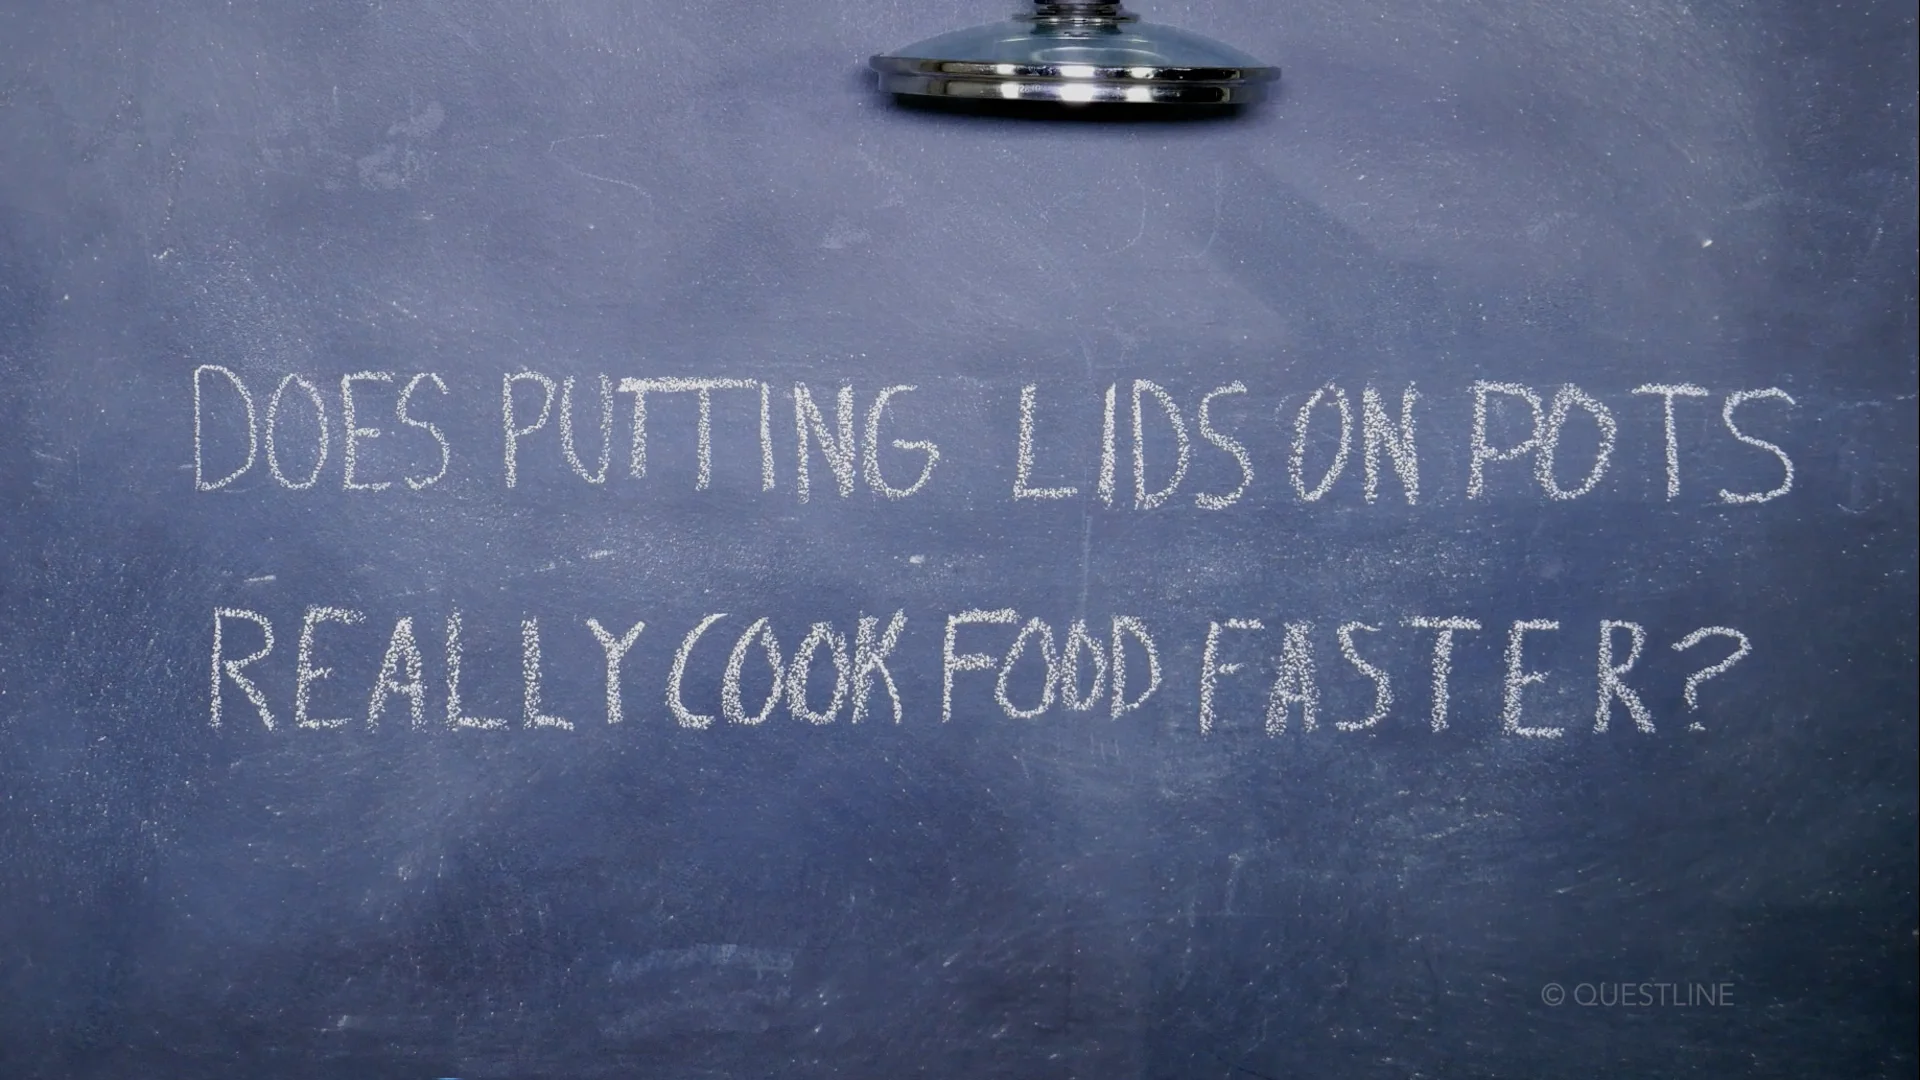 DOES PUTTING LIDS ON POTS
REALLY COOK FOOD FASTER?
© QUESTLINE